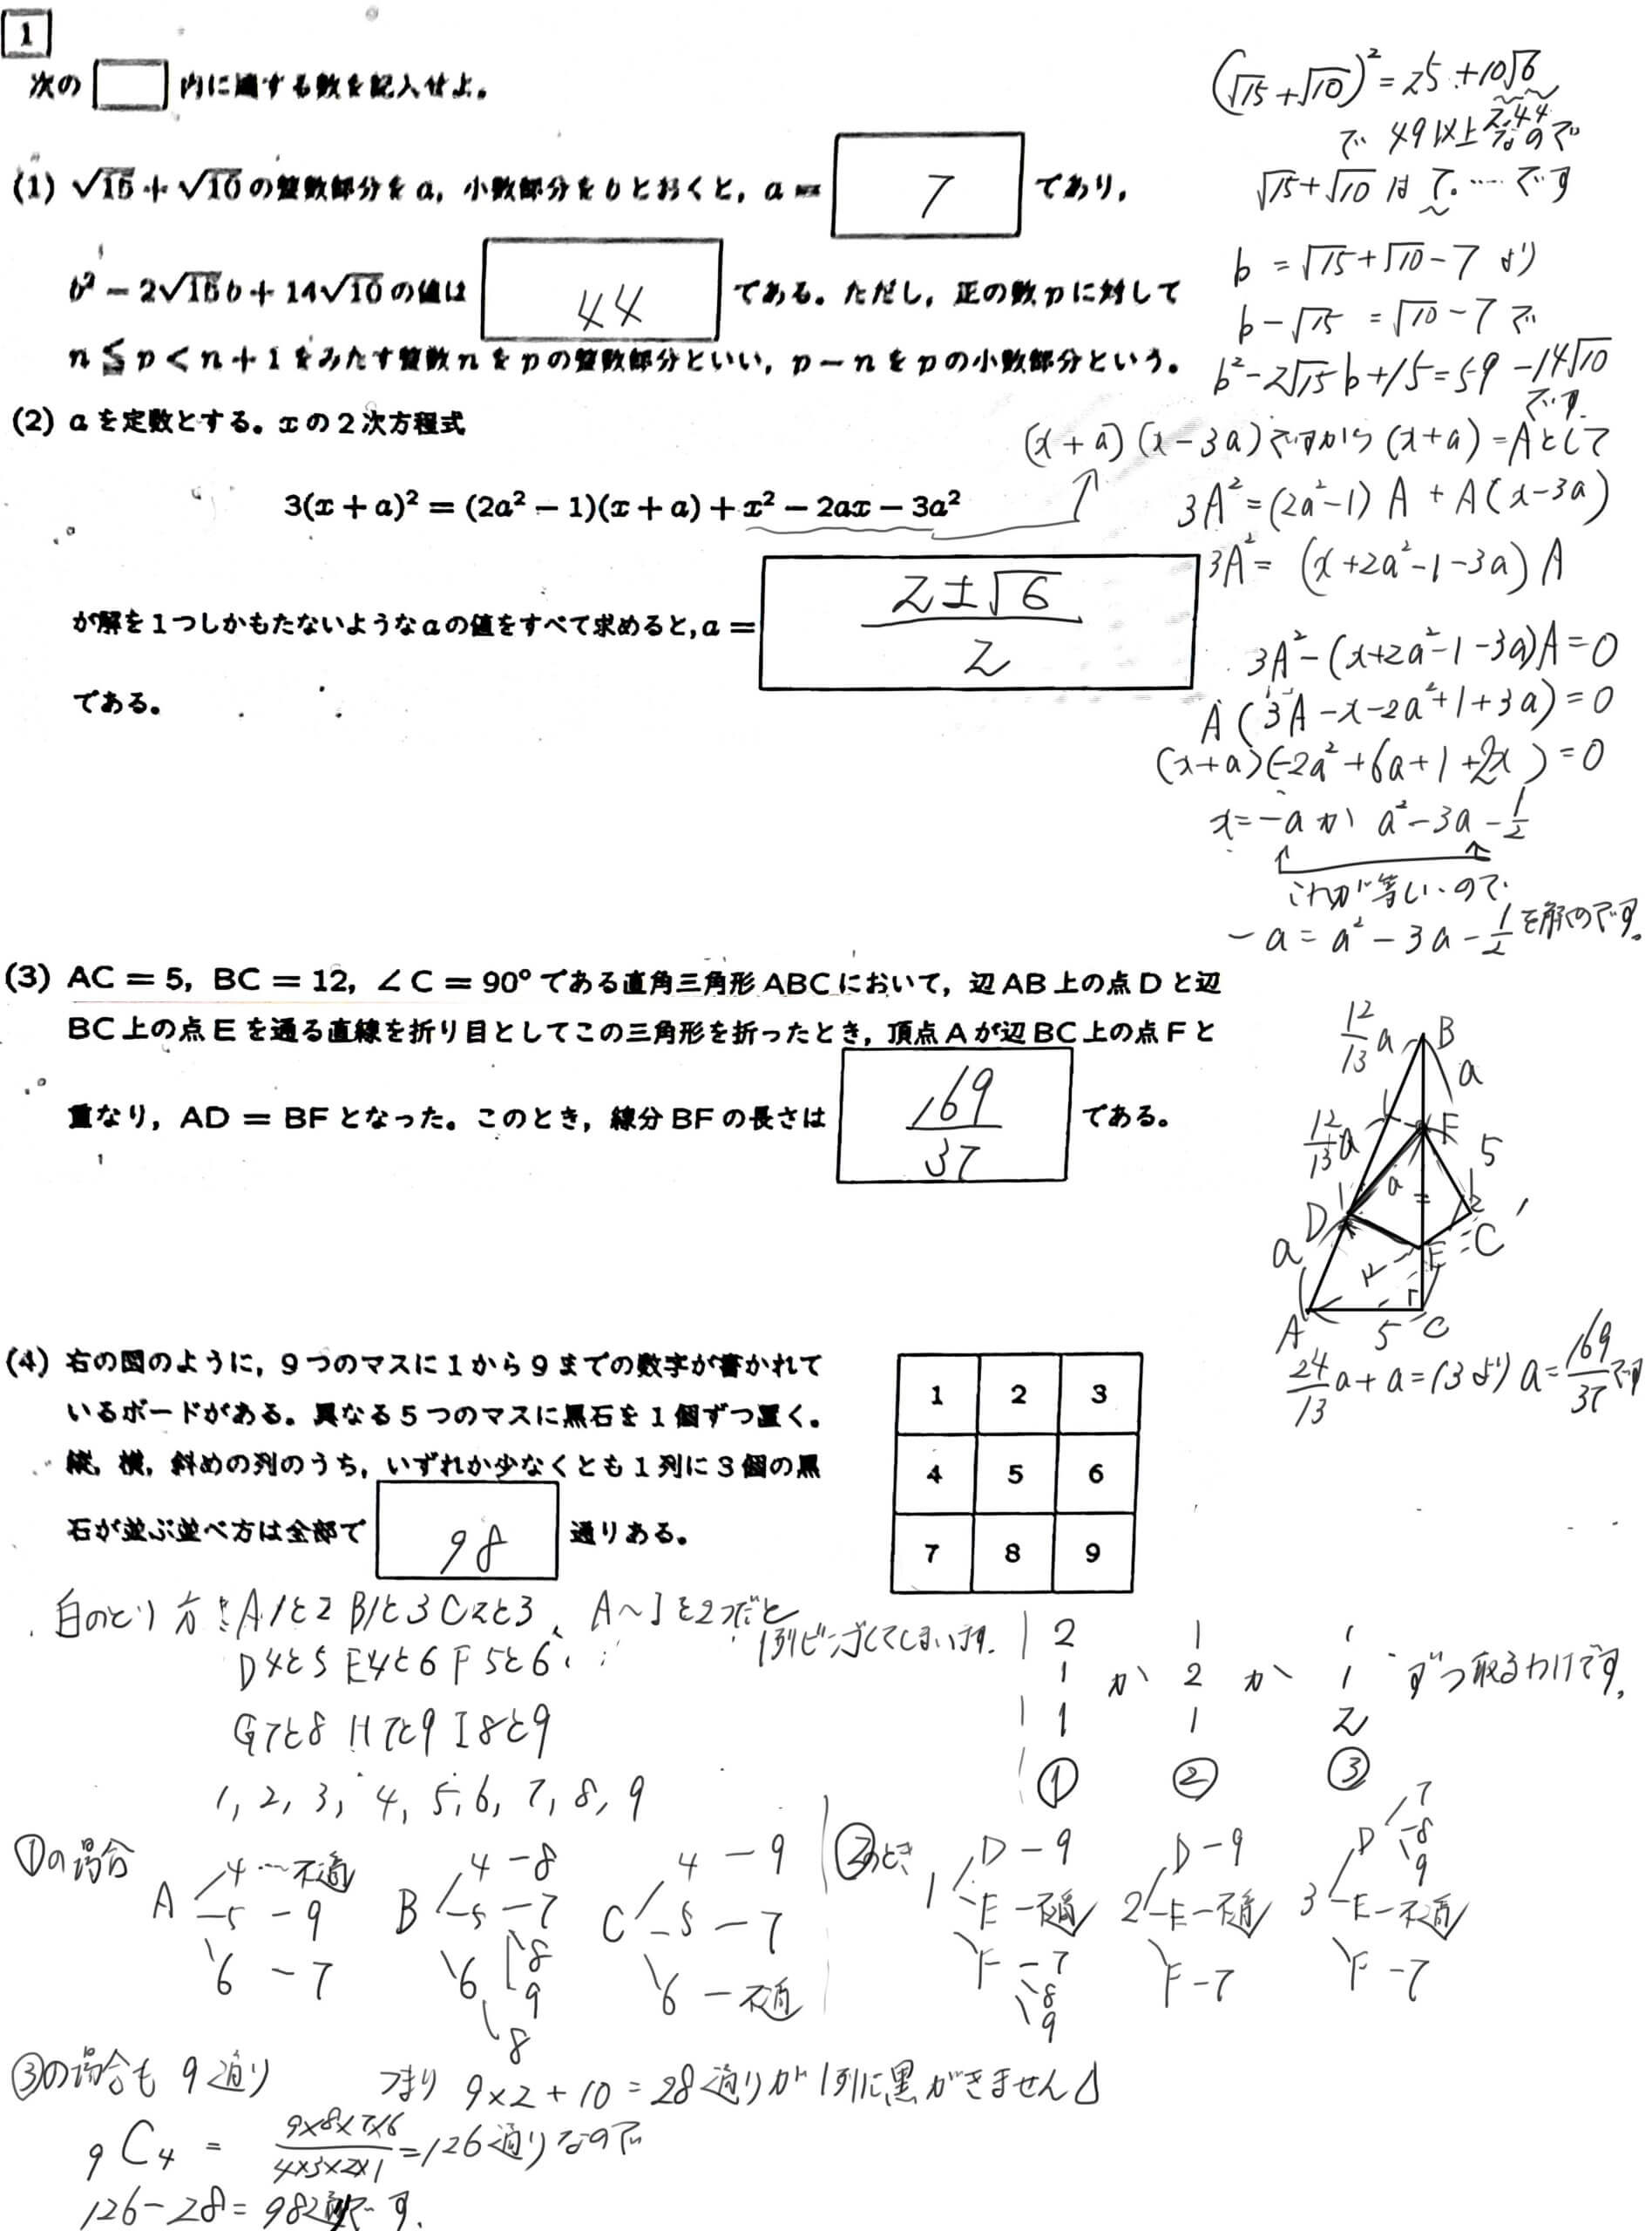 1
次の 内に適する数を記入せよ。
(1) √15+√10の整数部分をa, 小数部分をbとおくと, a= 7 であり,
b²-2√15b+14√10の値は 44 である。ただし, 正の数pに対して
n≦p<n+1をみたす整数nをpの整数部分といい, p-nをpの小数部分という。
(√15+√10)²=25+10√6
2.44
で 49以上なので
√15+√10 は 7.…… です
b =√15+√10-7 より
b-√15 =√10-7 で
b²-2√15b+15=59-14√10
です。
(2) aを定数とする。xの2次方程式
3(x+a)²=(2a²-1)(x+a)+x²-2ax-3a²
が解を1つしかもたないようなaの値をすべて求めると, a= (2±√6)/2
である。
(x+a)(x-3a)ですから(x+a)=Aとして
3A²=(2a²-1)A+A(x-3a)
3A²=(x+2a²-1-3a)A
3A²-(x+2a²-1-3a)A=0
A(3A-x-2a²+1+3a)=0
(x+a)(-2a²+6a+1+2x)=0
x=-a か a²-3a-1/2
これが等しいので
-a=a²-3a-1/2を解くのです。
(3) AC=5, BC=12, ∠C=90°である直角三角形ABCにおいて, 辺AB上の点Dと辺
BC上の点Eを通る直線を折り目としてこの三角形を折ったとき, 頂点Aが辺BC上の点Fと
重なり, AD=BFとなった。このとき, 線分BFの長さは 169/37 である。
12/13a B
a
12/13a F 5
a
D
a E C
A 5 C
24/13a+a=13より a=169/37です
(4) 右の図のように, 9つのマスに1から9までの数字が書かれて
いるボードがある。異なる5つのマスに黒石を1個ずつ置く。
縦, 横, 斜めの列のうち, いずれか少なくとも1列に3個の黒
石が並ぶ並べ方は全部で 98 通りある。
1 2 3
4 5 6
7 8 9
白のとり方をA1と2 B1と3 C2と3、 A〜Iを2つだと
1列ビンゴしてしまいます。
D4と5 E4と6 F5と6、
G7と8 H7と9 I8と9
1, 2, 3, 4, 5, 6, 7, 8, 9
2 1 1
1 か 2 か 1 ずつ取るわけです。
1 1 2
① ② ③
①の場合
A 4…不適
5-9
6-7
B 4-8
5-7
8
9
6
8
C 4-9
5-7
6-不適
②のとき
1 D-9
E-不適
F-7
8
9
2 D-9
E-不適
F-7
3 D 7
8
9
E-不適
F-7
③の場合も 9通り つまり 9×2+10=28通りが1列に黒ができません
9C4 = 9×8×7×6/4×3×2×1 =126通りなので
126-28=98通りです。